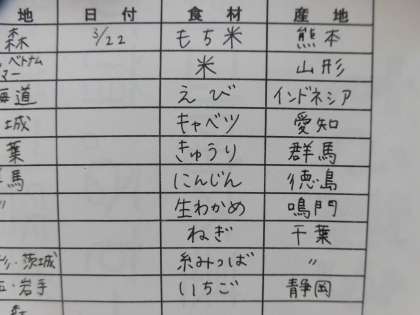 地 日付 食材 産地
森 3/22 もち米 熊本
ベトナム
マー 米 山形
海道 えび インドネシア
城 キャベツ 愛知
葉 きゅうり 群馬
馬 にんじん 徳島
〃 生わかめ 鳴門
ねぎ 千葉
茨城 糸みつば 〃
岩手 いちご 静岡